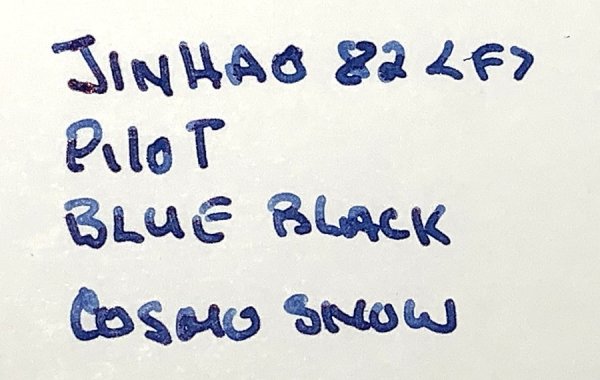 JINHAO 82 <F>
PILOT
BLUE BLACK
COSMO SNOW